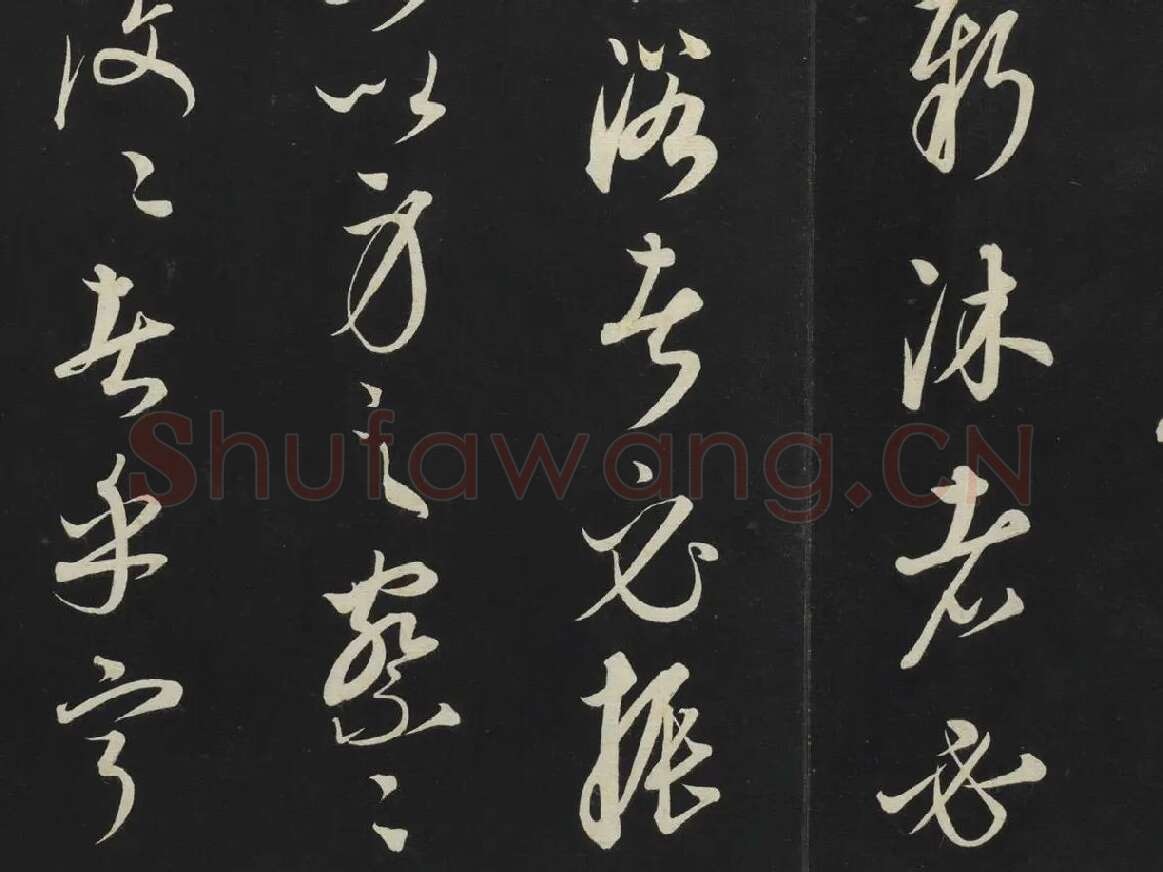 新沐者必
浴者必振
以身之察〻
汶〻者乎宁
Shufawang.CN